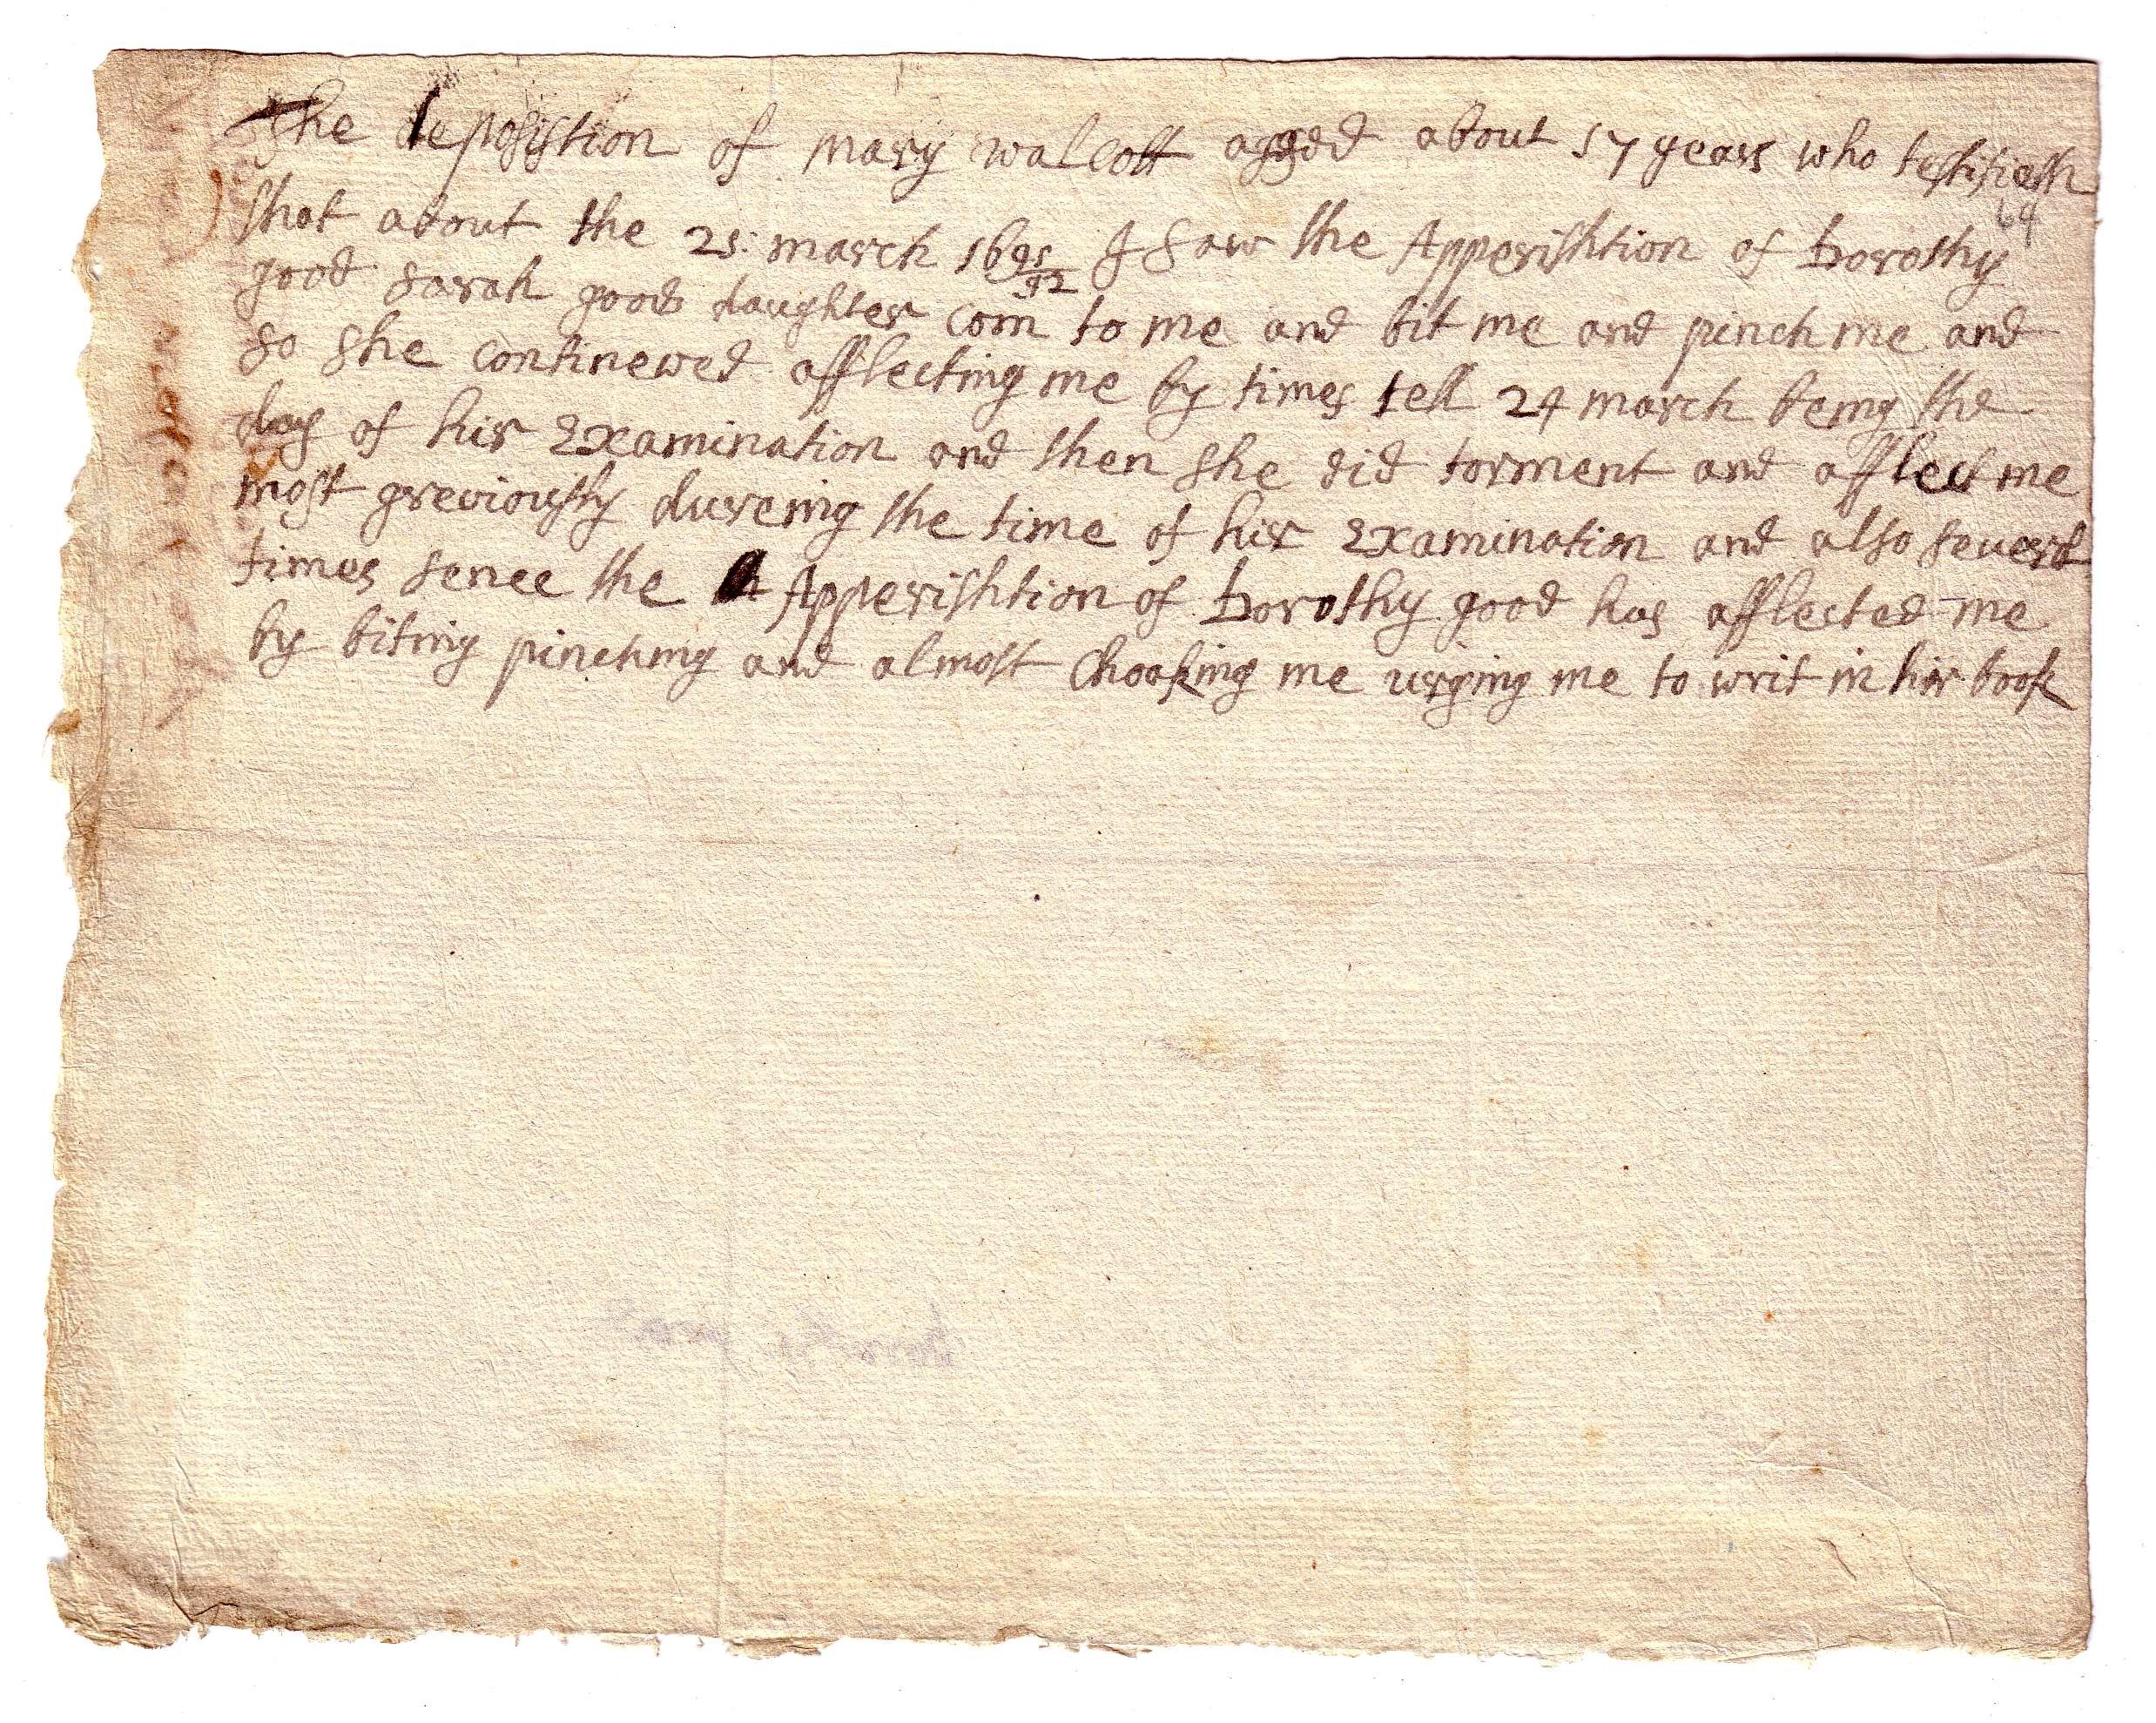 The deposistion of mary walcott agged about 17 years who testifieth
64
that about the 21: march 1691/92 I saw the Apperishtion of Dorothy
good sarah goods daughter com to me and bit me and pinch me and
so she continewed afflecting me by times tell 24 march being the
day of hir Examination and then she did torment and afflect me
most greviously dureing the time of hir Examination and also severl
times sence the Apperishtion of Dorothy good has afflected me
by biting pinching and almost Choaking me urging me to writ in hir book